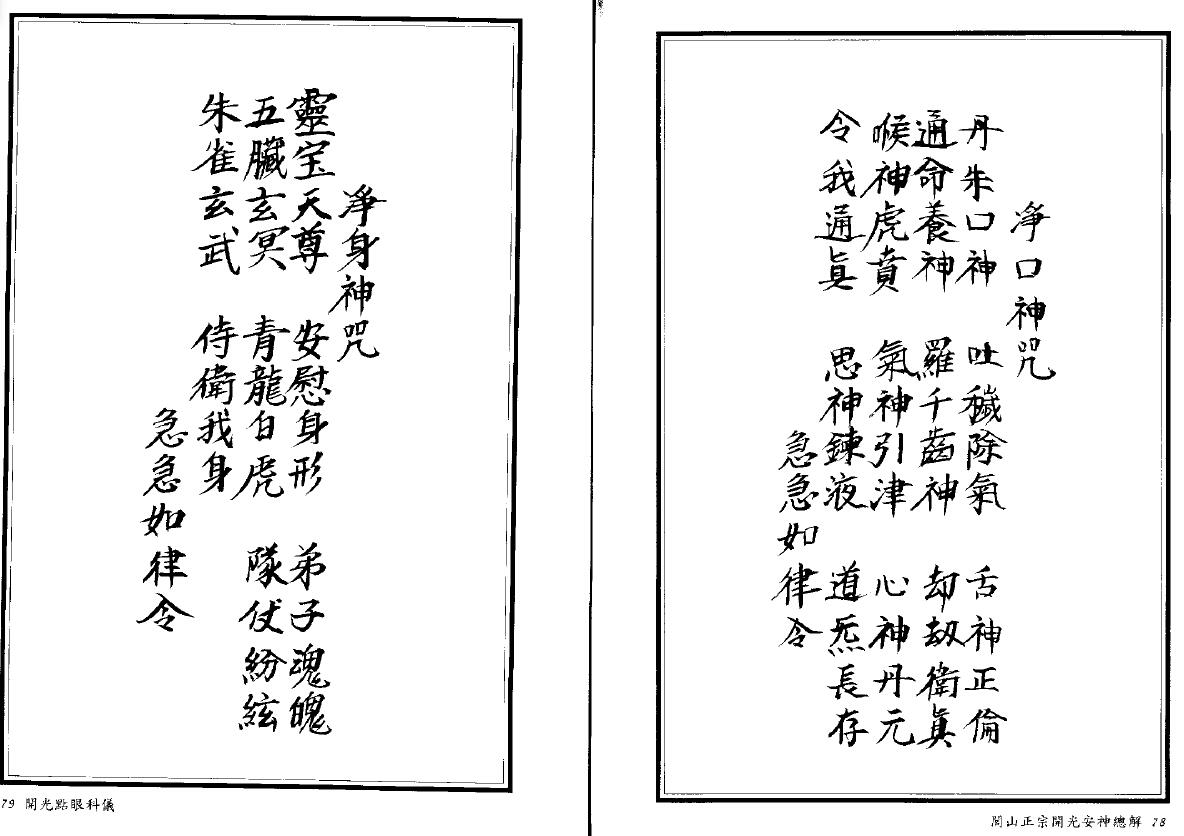 淨口神咒
丹朱口神 吐穢除氣 舌神正倫
通命養神 羅千齒神 却劫衛眞
喉神虎賁 氣神引津 心神丹元
令我通眞 思神鍊液 道炁長存
急急如律令
閭山正宗開光安神總解 78
淨身神咒
靈宝天尊 安慰身形 弟子魂魄
五臟玄冥 青龍白虎 隊仗紛紜
朱雀玄武 侍衛我身
急急如律令
79 開光點眼科儀